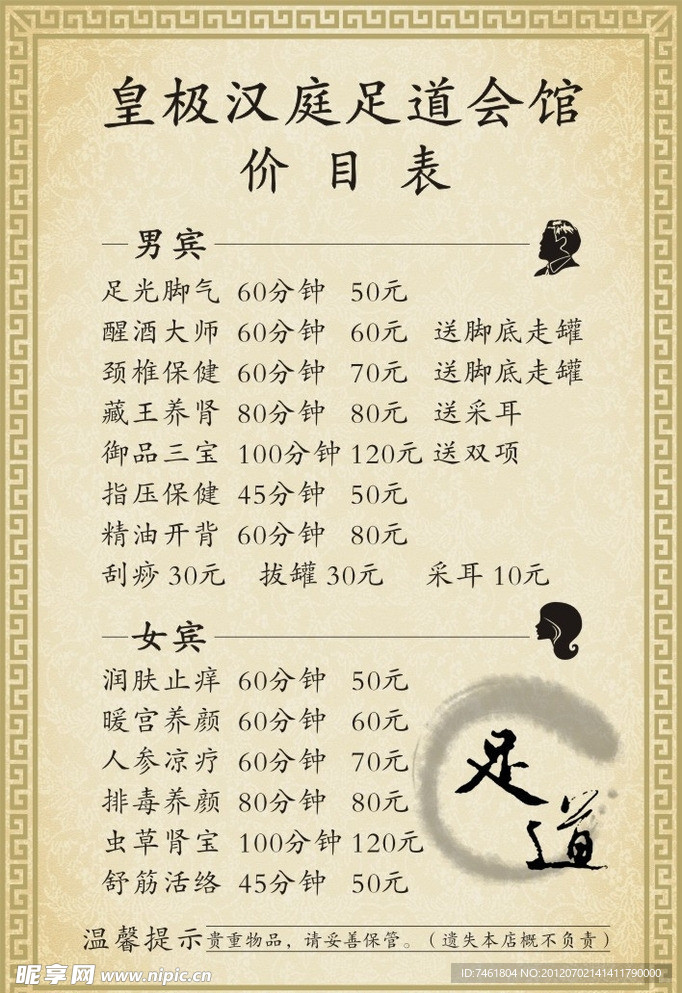 皇极汉庭足道会馆
价目表
男宾
足光脚气 60分钟 50元
醒酒大师 60分钟 60元 送脚底走罐
颈椎保健 60分钟 70元 送脚底走罐
藏王养肾 80分钟 80元 送采耳
御品三宝 100分钟 120元 送双项
指压保健 45分钟 50元
精油开背 60分钟 80元
刮痧 30元 拔罐 30元 采耳 10元
女宾
润肤止痒 60分钟 50元
暖宫养颜 60分钟 60元
人参凉疗 60分钟 70元
排毒养颜 80分钟 80元
虫草肾宝 100分钟 120元
舒筋活络 45分钟 50元
足道
温馨提示 贵重物品，请妥善保管。（遗失本店概不负责）
昵享网 www.nipic.cn
ID:7461804 NO:20120702141411790000